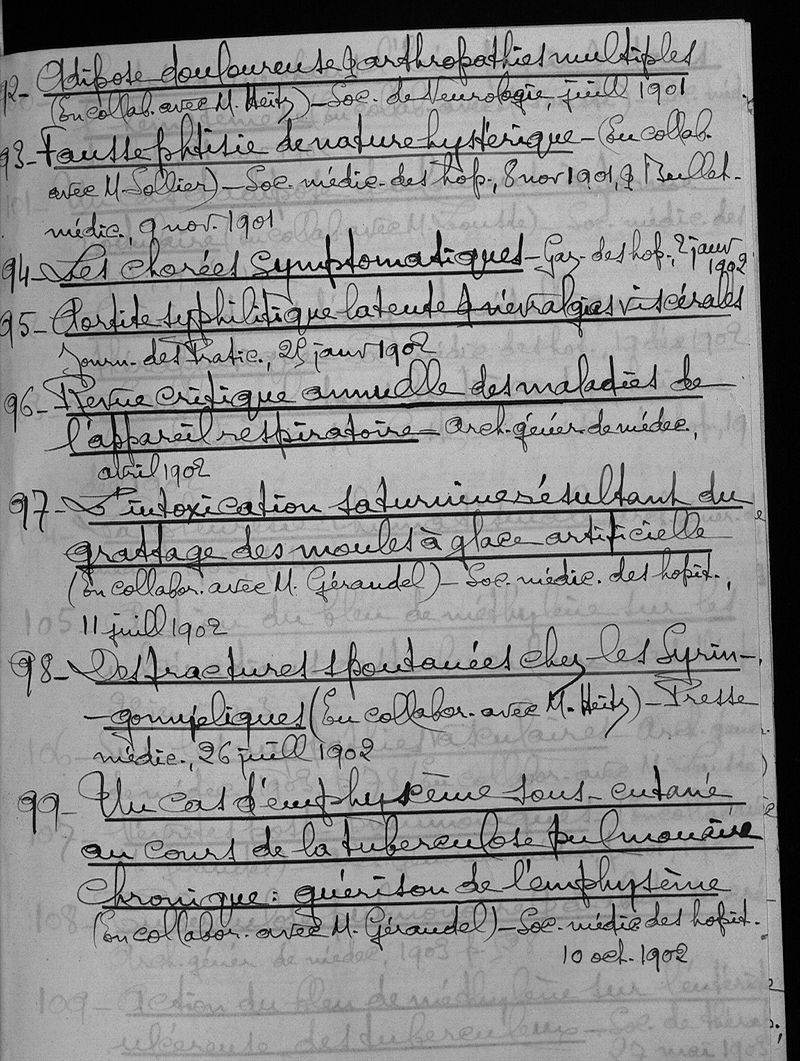 92- Adipose douloureuse & arthropathies multiples
(En collab. avec M. Heitz) – Soc. de Neurologie, juill 1901
93- Fausse phtisie de nature hystérique – (En collab.
avec M. Sollier) – Soc. médic. des hop., 8 nov 1901, & Bullet.
médic., 9 nov. 1901
94- Les chorées symptomatiques – Gaz. des hop., 2 janv
1902
95- Aortite syphilitique latente & névralgies viscérales
Journ. des Pratic., 25 janv 1902
96- Revue critique annuelle des maladies de
l'appareil respiratoire – Arch. génér. de médec.,
avril 1902
97- L'intoxication saturnine résultant du
grattage des moules à glace artificielle
(En collabor. avec M. Géraudel) – Soc. médic. des hopit.,
11 juill 1902
98- Des fractures spontanées chez les Syrin-
-gomyéliques (En collabor. avec M. Heitz) – Presse
médic., 26 juill 1902
99- Un cas d'emphysème sous-cutané
au cours de la tuberculose pulmonaire
chronique : guérison de l'emphysème
(En collabor. avec M. Géraudel) – Soc. médic des hopit.
10 oct. 1902